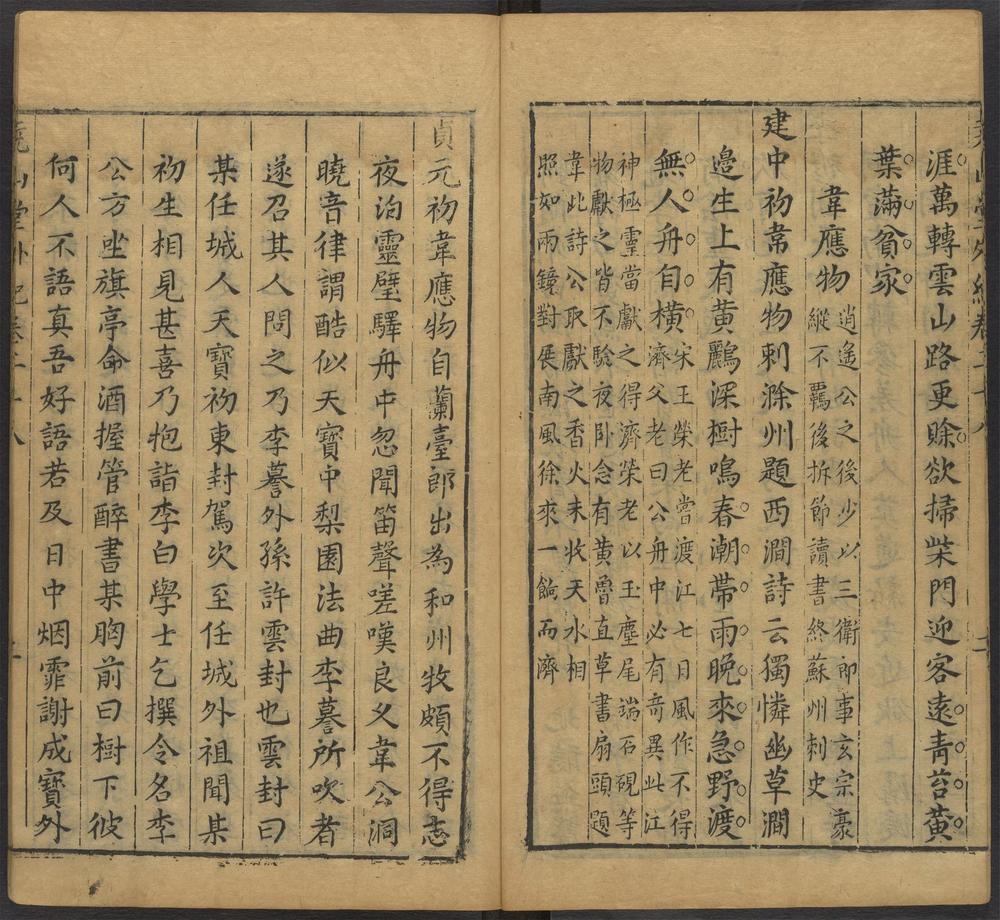 涯萬轉雲山路更賒欲掃柴門迎客遠青苔黃
葉滿貧家
韋應物
逍遙公之後少以三衛郎事玄宗豪
縱不羈後折節讀書終蘇州刺史
建中初韋應物刺滁州題西澗詩云獨憐幽草澗
邊生上有黃鸝深樹鳴春潮帶雨晚來急野渡
無人舟自橫
宋王榮老嘗渡江七日風作不得
濟父老曰公舟中必有奇異此江
神極靈當獻之得濟榮老以玉麈尾端石硯等
物獻之皆不驗夜臥念有黃魯直草書扇頭題
韋此詩公取獻之香火未收天水相
照如兩鏡對展南風徐來一餉而濟
貞元初韋應物自蘭臺郎出為和州牧頗不得志
夜泊靈璧驛舟中忽聞笛聲嗟嘆良乆韋公洞
曉音律謂酷似天寶中梨園法曲李謩所吹者
遂召其人問之乃李謩外孫許雲封也雲封曰
某任城人天寶初東封駕次至任城外祖聞某
初生相見甚喜乃抱詣李白學士乞撰令名李
公方坐旗亭命酒握管醉書某胸前曰樹下彼
何人不語真吾好語若及日中烟霏謝成寶外
堯山堂外紀卷二十八